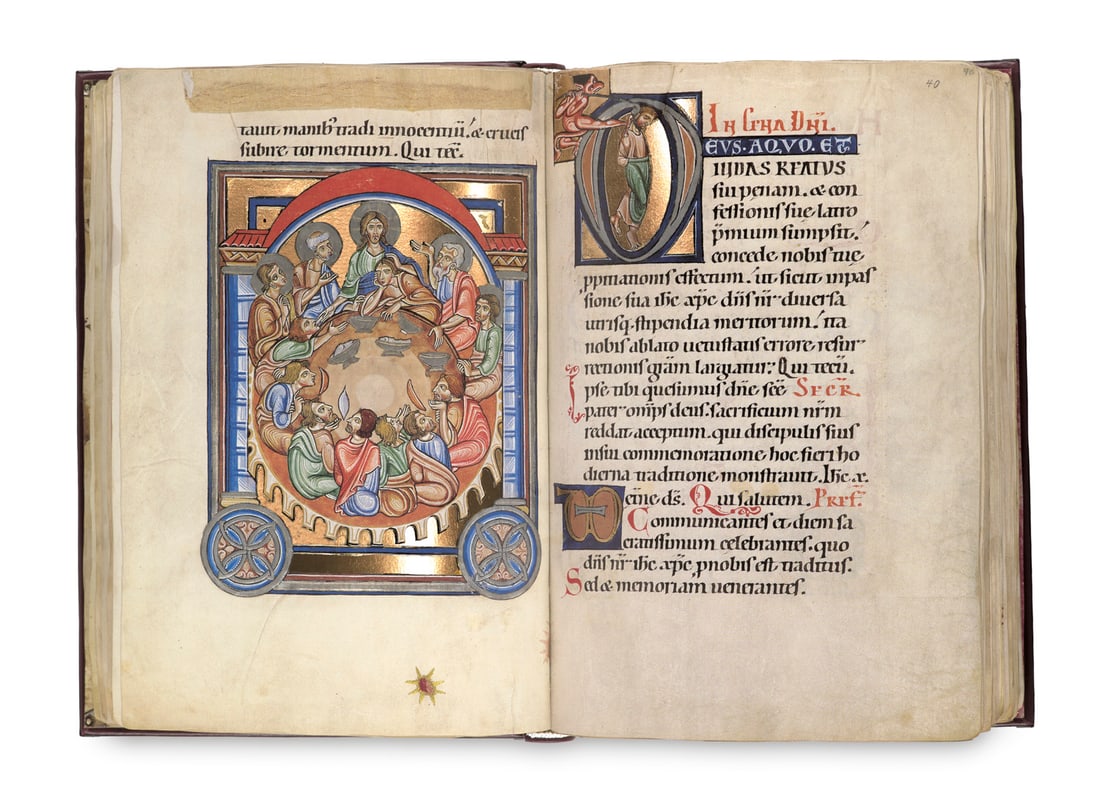 tauit manib tradi innocentiū. & crucis
subire tormentum. Qui teē.
40 40
IN CENA DNI.
EVS. A QVO. ET
IUDAS REATUS
sui penam. & con
fessionis sue latro
p̄mium sumpsit.
concede nobis tue
ppitiationis effectum. ut sicut inpas
sione sua ihc xp̄c dn̄s nr̄ diuersa
utrisq. stipendia meritorum. ita
nobis ablato uetustatis errore resur
rectionis grām largiatur. Qui tecū.
Ipse tibi quesumus dn̄e scē SECR̄
pater omp̄s deus. sacrificium nr̄m
reddat acceptum. qui discipulis suis
insui commemoratione hoc fieri ho
dierna traditione monstrauit. Ihc x̄.
eīne ds. Qui salutem. PREF.
Communicantes et diem sa
cratissimum celebrantes. quo
dn̄s nr̄ ihc xp̄c p nobis est traditus.
Sed & memoriam uenerantes.